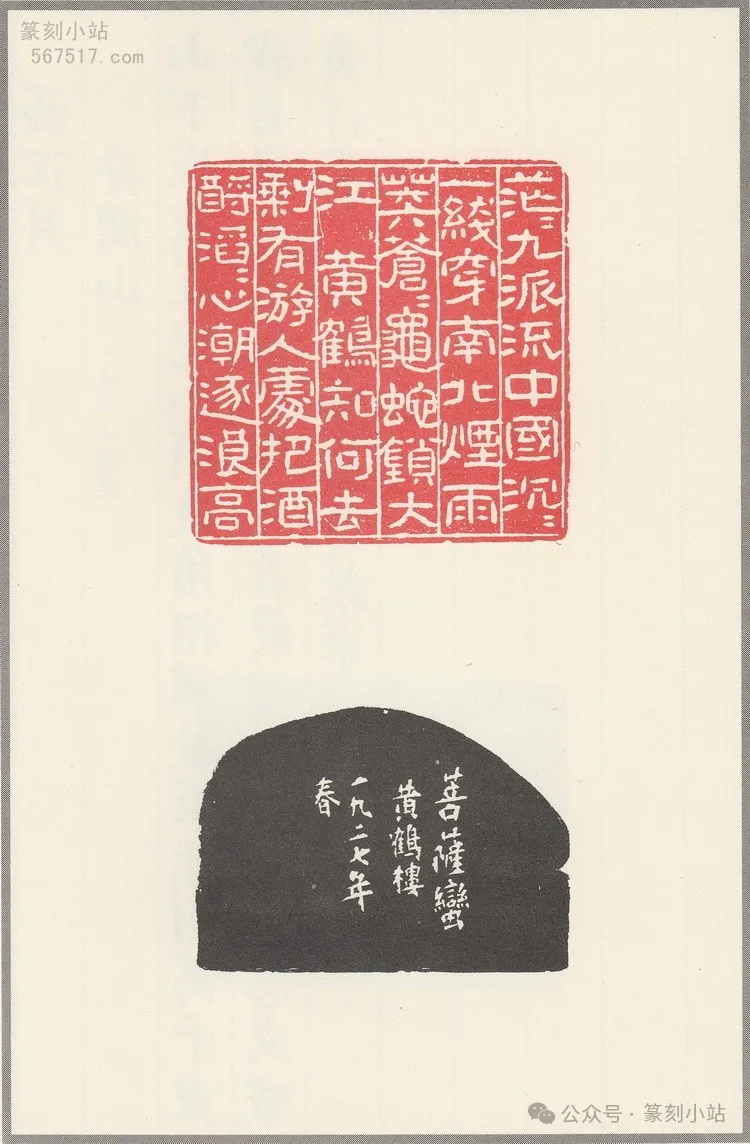 篆刻小站
567517.com
茫〻九派流中國沉〻
一綫穿南北煙雨
莽蒼〻龜蛇鎖大
江 黄鶴知何去
剩有游人處把酒
酹滔〻心潮逐浪高
菩薩蠻
黄鶴樓
一九二七年
春
公众号 · 篆刻小站